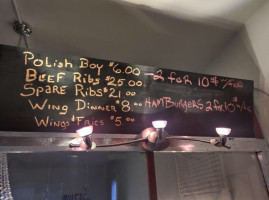 Polish Boy $6.00 - 2 for 10$
Beef Ribs $25.00
Spare Ribs $21.00
Wing Dinner $8.00 Hamburgers 2 for 10$
Wings & Fries $5.00